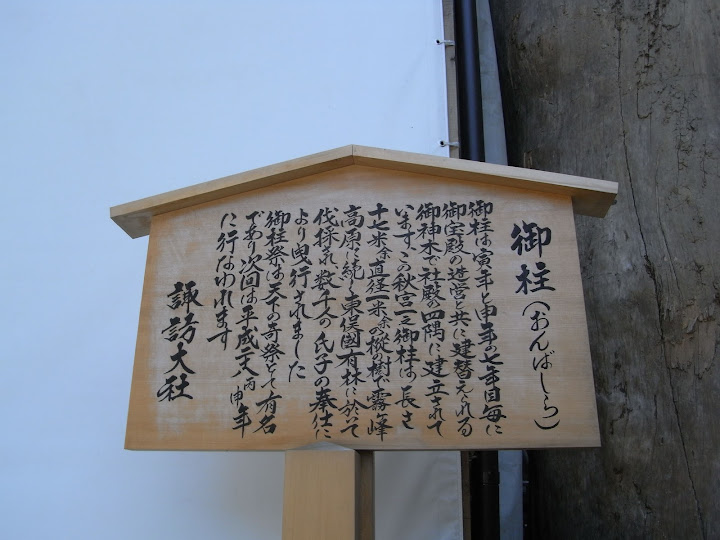 御柱(おんばしら)
御柱は寅年と申年の七年目毎に
御宝殿の造営と共に建替えられる
御神木で社殿の四隅に建立されて
います、この秋宮一之御柱は、長さ
十七米余直径一米余の樅の樹で霧ヶ峰
高原に続く東俣国有林に於いて
伐採され数千人の氏子の奉仕に
より曳行されました
御柱祭は天下の奇祭として有名
であり次回は平成二八丙申年
に行なわれます
諏訪大社